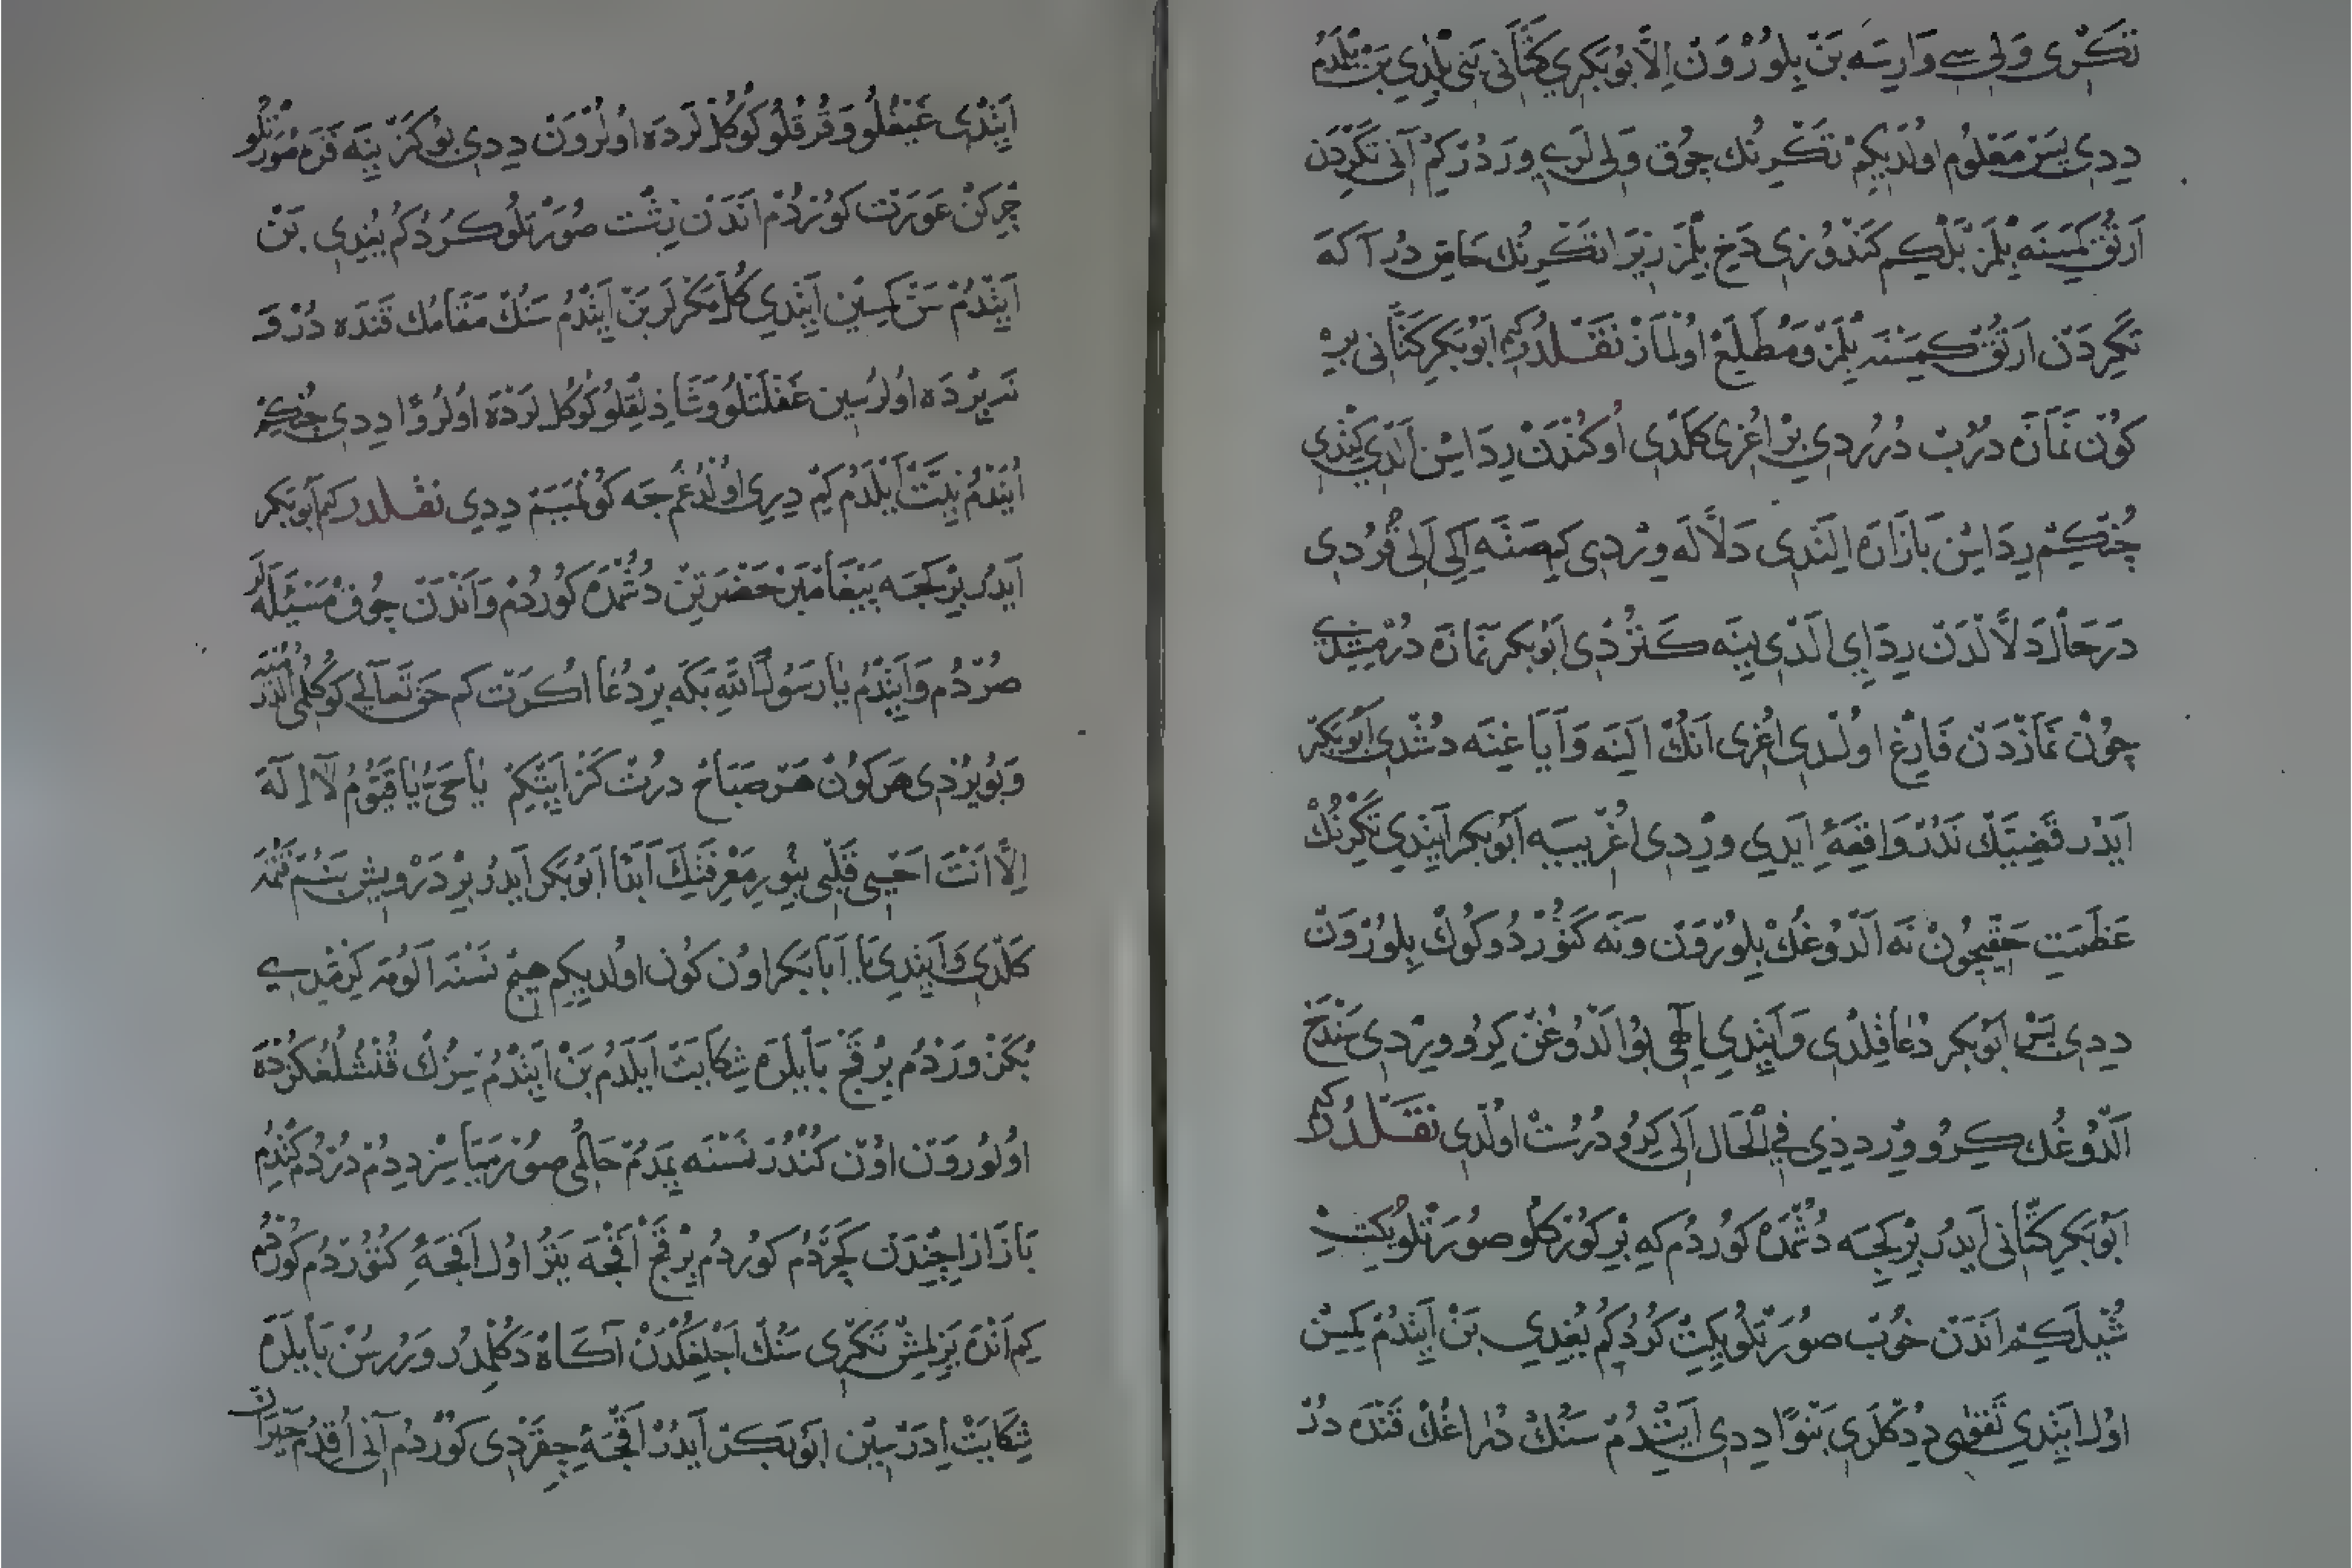 تَكْرِى وَلِى سِى وَارِسَه بَنْ بِلُورُوَنْ اِلَّا بُو بَكْرِى كَتَّانِى بَنِى بِلْدِى بَنْ بِلْمَدُمْ
دِدِى پَسْ مَعْلُوم اُولْدِيكِمْ تَكْرِنُكْ چُوقْ وَلِى لَرِى وَرْدُرْ كِمْ اَنِى تَكْرِدَنْ
اَرْتُقْ كِمْسَنَه بِلْمَزْ بَلْكِمْ كَنْدُوزِى دَخِ بِلْمَزْ زِيرَا تَكْرِنُكْ خَاصِّ دُرْ اَكَه
تَكْرِدَنْ اَرْتُقْ كِمْسَنَه بِلْمَزْ وَمُطَّلِعْ اُولْمَازْ نَقْلْدُرْكِمْ اَبُو بَكْرِ كَتَّانِى بِرْ
كُونْ نَمَازَه دُرُبْ دُرُرْدِى بِرْ اُغْرِى كَلْدِى اُوكُنْدَنْ رِدَاسِنْ اَلْدِى كِتْدِى
چُنْكِمْ رِدَاسِنْ بَازَارَه اِلَتْدِى دَلَّالَه وِرْدِى كِه صَتَه اِكِى اَلِى قُرُدِى
دَرْحَالْ دَلَّالْدَنْ رِدَايِى اَلْدِى يِنَه كَتُرْدِى اَبُو بَكْرْ نَمَازَه دُرْمِشْدِى
چُونْ نَمَازْدَنْ فَارِغْ اُولْدِى اُغْرِى اَنُكْ اَلِنَه وَاَيَاغِنَه دُشْدِى اَبُو بَكْرْ
اَيْدُرْ قَضِيَّتِكْ نَدُرْ وَاقِعَهٔ اَيْدِى وِرْدِى اُغْرِيْيَه اَبُو بَكْرْ اَيِتْدِى تَكْرِنُكْ
عَظَمَتِ حَقِّيچُونْ نَه اَلْدُوغُكْ بِلُورُوَنْ وَنَه كَتُورْدُوكُوكْ بِلُورُوَنْ
دِدِى پَسْ اَبُو بَكْرْ دُعَا قِلْدِى وَاَيِتْدِى اِلٰهِى بُو اَلْدُوغُنْ كِرُو وِيرْدِى سَنْ دَخِ
اَلْدُوغُكْ كِرُو وِرْ دِدِى فِى الْحَالْ اَلِى كِرُو دُرُسْتْ اُولْدِى نَقْلْدُرْكِمْ
اَبُو بَكْرِ كَتَّانِى اَيْدُرْ بِرْ كِجَه دُشُمْدَه كُورْدُمْ كِه بِرْ كُورْكْلُو صُورَتْلُو يِكِتْ
شُيْلَكِمْ اَنْدَنْ خُوبْ صُورَتْلُو يِكِتْ كُرْدُكُمْ يُغِدِى بَنْ اَيِتْدُمْ كِمْسِنْ
اُولْ اَيِتْدِى تَقْوٰى دِدُكْلَرِى بَنْوَا دِدِى اَيِتْدُمْ سَنُكْ دُرَاغُكْ قَنْدَه دُرْ
اَيِتْدِى غَيْغُلُو وَقُرْقُلُو كُوكُلْلَرْدَه اُولُرْوَنْ دِدِى بُو كَزْ يِنَه قَرَه صُورَتْلُو
چِرْكِنْ عَوْرَتْ كُورْدُمْ اَنْدَنْ زِشْتْ صُورَتْلُو كُرْدُكُمْ يُغِدِى بَنْ
اَيِتْدُمْ سَنْ كِمْسِينْ اَيِتْدِى كُلْمَكْلَرْبَنْ اَيِتْدُمْ سَنُكْ مَقَامُكْ قَنْدَه دُرْ وَ
نَه يِرْدَه اُولُرْسِينْ غَفْلَتْلُو وَشَاذِلِقْلُو كُوكُلْلَرْدَه اُولُرْوَا دِدِى چُنْكِمْ
اُيَنْدُمْ نِيَّتْ اَيْلَدُمْ كِمْ دِيرِى اُولْدُغُمْجَه كُولْمَيَمْ دِدِى نَقْلْدُرْكِمْ اَبُو بَكْرْ
اَيْدُرْ بِرْ كِجَه پَيْغَامْبَرْ حَضْرَتِنْ دُشُمْدَه كُورْدُمْ وَاَنْدَنْ چُوقْ مَسْئَلَه لَرْ
صُرْدُمْ وَاَيِتْدُمْ يَا رَسُولَ اللّٰهِ بَكَه بِرْ دُعَا اُكْرَتْ كِمْ حَقْ تَعَالٰى كُوكْلُمِى اُلْدُرْمَيَه
وَبُويُرْدِى هَرْ كُونْ هَرْ صَبَاحْ دُرْتْ كَزْ اَيِتْكِمْ يَا حَىُّ يَا قَيُّومُ لَا اِلٰهَ
اِلَّا اَنْتَ اَحْيِى قَلْبِى بِنُورِ مَعْرِفَتِكَ اَبَدًا اَبُو بَكْرْ اَيْدُرْ بِرْ دَرْوِيشْ بَنُمْ قَتُمَه
كَلْدِى وَاَيِتْدِى يَا اَبَا بَكْرْ اُونْ كُونْ اُولْدِيكِمْ هِيچْ نَسْنَه اَلُومَه كِرْمَدِى
بُكَزْ وَرْدُمْ بِرْ قَچْ بَايْلَرَه شِكَايَتْ اَيْلَدُمْ بَنْ اَيِتْدُمْ سِزُكْ قُنْشُلُغُكُزْدَه
اُولُورْوَنْ اُونْ كُنْدُرْ نَسْنَه يِمَدُمْ حَالُمِى صُورْمَيَاسِزْ دِدُمْ دُرْدُمْ كِتْدُمْ
بَازَارْ اِچِنْدَنْ كَچَرْدُمْ كُورْدُمْ بِرْ قَچْ اَقْچَه يَتُرْ اُولْ اَقْچَهٔ كَتُورْدُمْ كُورْدُمْ
كِمْ اَنْدَه يَزِلْمِشْ تَكْرِى سَنُكْ اَجْلِغُكْدَنْ اَكَاهْ دَكُلْمِدُرْ وَرُرْسُنْ بَايْلَرَه
شِكَايَتْ اِدَرْسِينْ اَبُو بَكْرْ اَيْدُرْ اَقْچَهٔ چِقَرْدِى كُورْدُمْ اَنِى اُقِدُمْ حَيْرَانْ